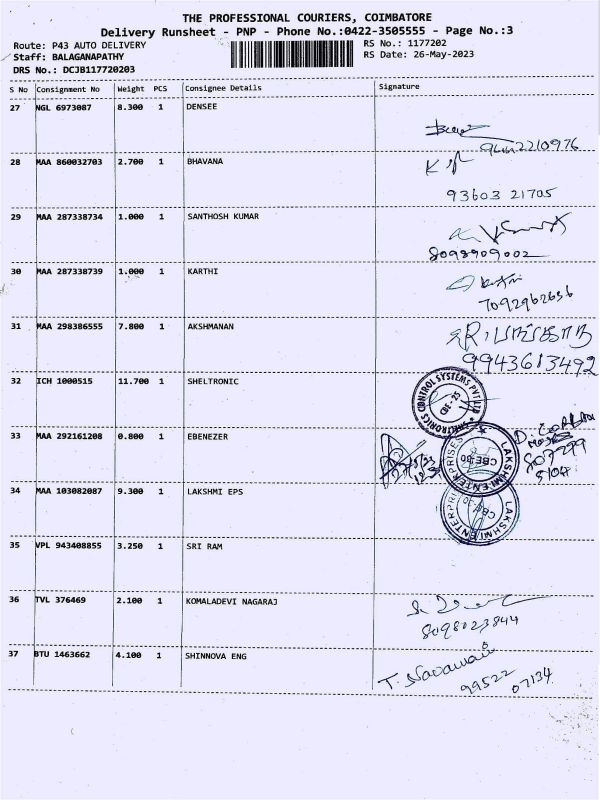 THE PROFESSIONAL COURIERS, COIMBATORE
Delivery Runsheet - PNP - Phone No.:0422-3505555 - Page No.:3
Route: P43 AUTO DELIVERY RS No.: 1177202
Staff: BALAGANAPATHY RS Date: 26-May-2023
DRS No.: DCJB117720203
S No Consignment No Weight PCS Consignee Details Signature
27 NGL 6973087 8.300 1 DENSEE
28 MAA 860032703 2.700 1 BHAVANA
93603 21705
29 MAA 287338734 1.000 1 SANTHOSH KUMAR
8098909002
30 MAA 287338739 1.000 1 KARTHI
7092962656
31 MAA 298386555 7.800 1 AKSHMANAN
9943613492
32 ICH 1000515 11.700 1 SHELTRONIC
CONTROL SYSTEMS PVT LTD
CBE-25
33 MAA 292161208 0.800 1 EBENEZER
LAKSHMI ENTERPRISES
34 MAA 103082087 9.300 1 LAKSHMI EPS
LAKSHMI ENTERPRISES
35 VPL 943408855 3.250 1 SRI RAM
36 TVL 376469 2.100 1 KOMALADEVI NAGARAJ
8098023844
37 BTU 1463662 4.100 1 SHINNOVA ENG
99522 07134